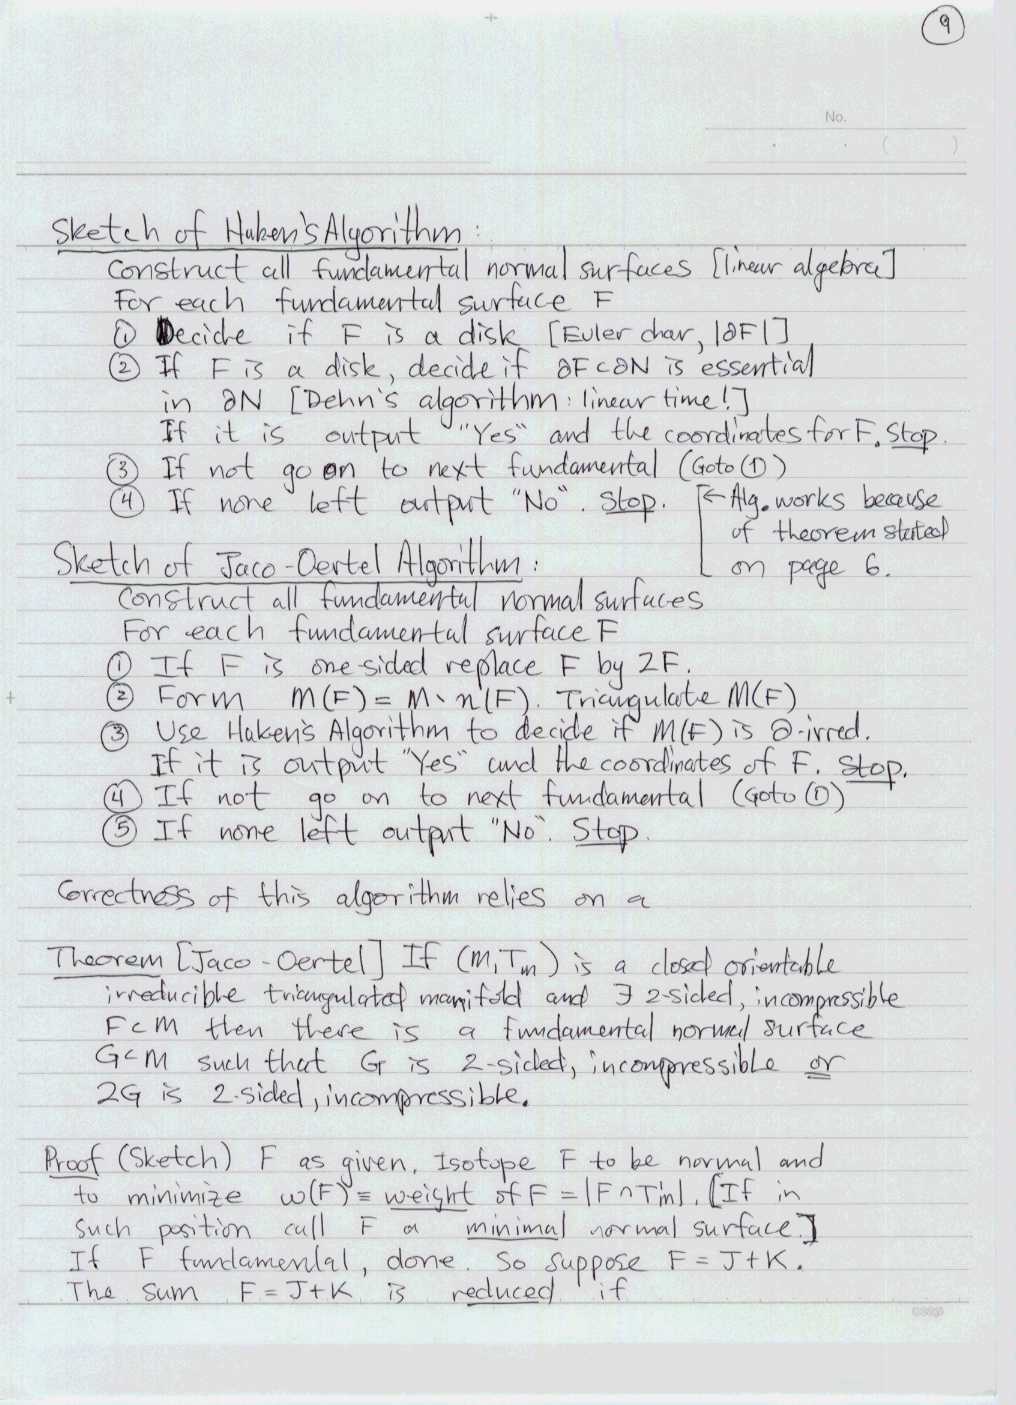 9
No.
( )
Sketch of Haken's Algorithm:
Construct all fundamental normal surfaces [linear algebra]
For each fundamental surface F
① Decide if F is a disk [Euler char, |∂F|]
② If F is a disk, decide if ∂F⊂∂N is essential
in ∂N [Dehn's algorithm: linear time!]
If it is output "Yes" and the coordinates for F. Stop.
③ If not go on to next fundamental (Goto ①)
④ If none left output "No". Stop.
[← Alg. works because
of theorem stated
on page 6.
Sketch of Jaco-Oertel Algorithm:
Construct all fundamental normal surfaces
For each fundamental surface F
① If F is one-sided replace F by 2F.
② Form M(F) = M \ n(F). Triangulate M(F)
③ Use Haken's Algorithm to decide if M(F) is ∂-irred.
If it is output "Yes" and the coordinates of F. Stop.
④ If not go on to next fundamental (Goto ①)
⑤ If none left output "No". Stop.
Correctness of this algorithm relies on a
Theorem [Jaco-Oertel] If (M, T_M) is a closed orientable
irreducible triangulated manifold and ∃ 2-sided, incompressible
F⊂M then there is a fundamental normal surface
G⊂M such that G is 2-sided, incompressible or
2G is 2-sided, incompressible.
Proof (Sketch) F as given. Isotope F to be normal and
to minimize ω(F) ≡ weight of F = |F∩T_M|. [If in
such position call F a minimal normal surface.]
If F fundamental, done. So suppose F = J+K.
The sum F = J+K is reduced if